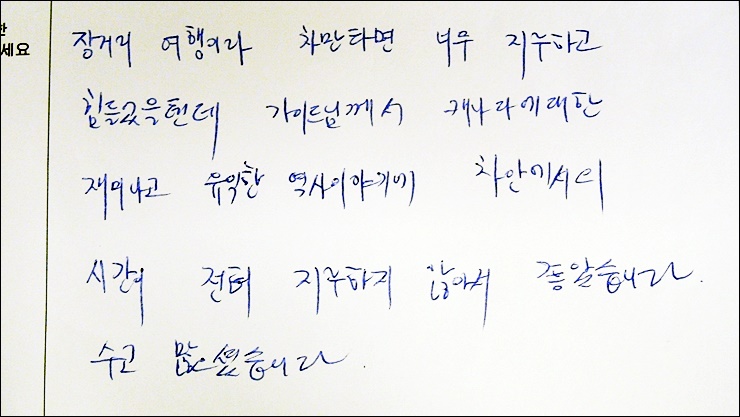 한
세요
장거리 여행이라 차만타면 너무 지루하고
힘들었을텐데 가이드님께서 캐나다에대한
재미나고 유익한 역사이야기에 차안에서의
시간이 전혀 지루하지 않아서 좋았습니다.
수고 많으셨습니다.